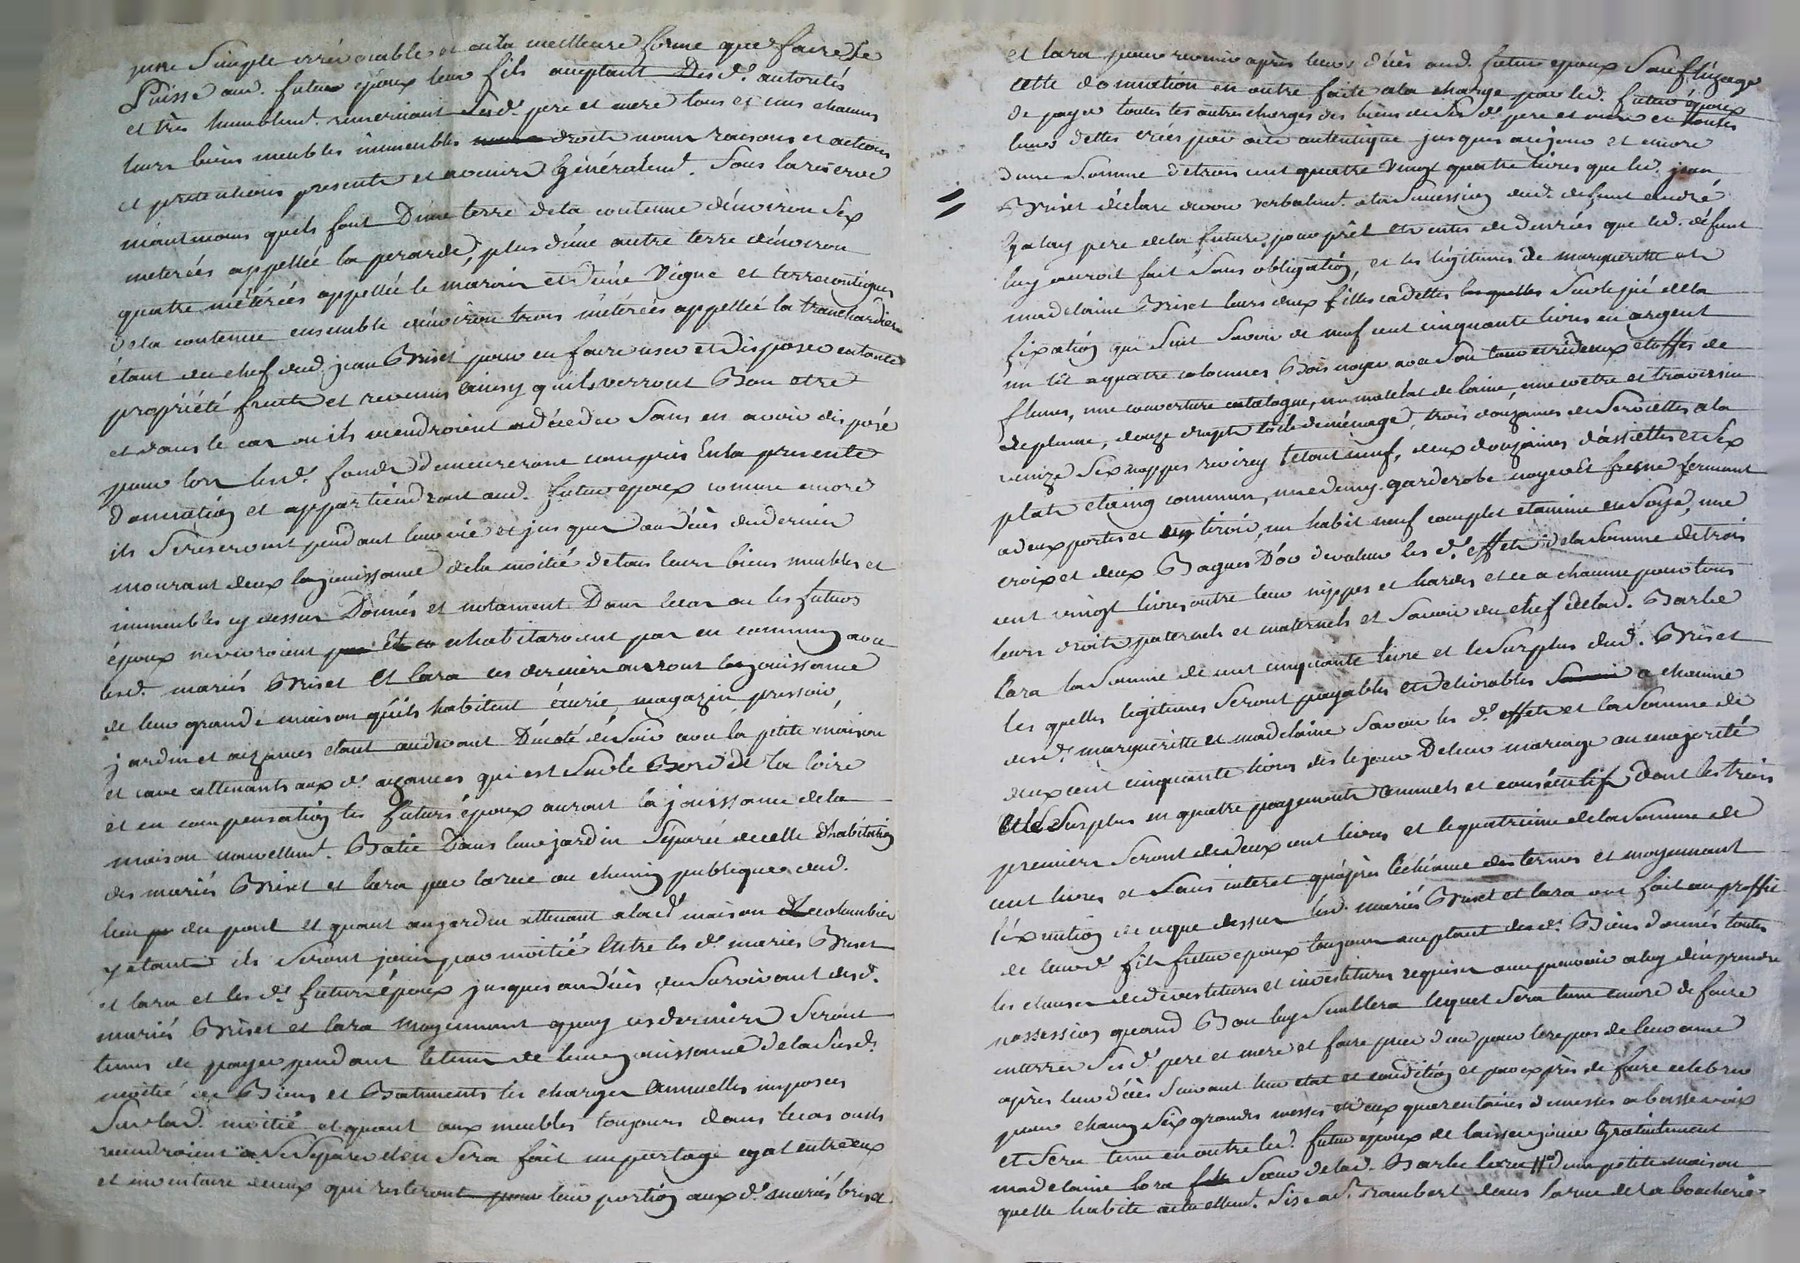 pure Simple irrévocable et en la meilleure forme que faire Se
Puisse aud. futur époux leur fils acceptant Desd. autorités
et très humblemt. remerciant Sesd. pere et mere tous et uns chacuns
leurs biens meubles immeubles droits noms raisons et actions
et prétentions presents et avenir Généralemt. Sous la réserve
néantmoins quils font D'une terre de la contenue d'environ Six
meterées appellée la perarde, plus d'une autre terre d'environ
quatre méterées appellée le marais et d'une Vigne et terre contigues
de la contenue ensemble d'environ trois méterées appellée la tranchardiere
étant du chef dud. jean Briset pour en faire user et disposer en toute
propriété fruits et revenus ainsy quils verront Bon etre
et dans le cas ou ils viendroient a décéder Sans en avoir disposé
pour lors lesd. fonds demeureront compris En la presente
donnation et appartiendront aud. futur époux comme encore
ils Se reservent pendant leur vie et jusques au décès du dernier
mourant deux la jouissance de la moitié de tous leurs biens meubles et
immeubles cy dessus Donnés et notament Dans le cas ou les futurs
époux ne vivroient et cohabiteroient pas en commun avec
lesd. mariés Briset Et Lara ces derniers auront la jouissance
de leur grande maison quils habitent écurie, magazin pressoir,
jardin et aizances étant audevant Du coté de Soir avec la petite maison
et cave attenants aux d. aizances qui est Sur le Bord de la loire
et en compensation les futurs époux auront la jouissance de la
maison nouvellemt. Batie Dans leur jardin Séparée de celle d'habitation
des mariés Briset et Lara par la rue ou chemin publique dud.
lieu du pont et quant au jardin attenant a lad. maison colombier
y étant ils Seront jouis par moitié Entre les d. mariés Briset
et Lara et les d. futurs époux jusques au décès du Survivant desd.
mariés Briset et Lara moyennant quoy ces derniers Seront
tenus de payer pendant le tems de leur jouissance de la Susd.
moitié des Biens et Batiments les charges annuelles imposées
Sur lad. moitié et quant aux meubles toujours dans le cas ou ils
viendroient a Se Separer il en Sera fait un partage egal entre eux
et inventaire deux qui resteront pour leur portion aux d. mariés briset
et Lara pour revenir après leurs décès aud. futur epoux Sauf l'usage
cette donnation en outre faite a la charge par led. futur époux
de payer toutes les autres charges des biens de Ses d. pere et mere et toutes
leurs dettes créés par acte autentique jusques a ce jour et encore
d'une Somme de trois cent quatre Vingt quatre livres que led. jean
Briset déclare devoir verbalemt. a la Succession dud. defunt andré
pere de la future, pour prêt et ventes de denrées que led. défunt
luy auroit fait Sans obligation, et les légitimes de marguerite et
madelaine Briset leurs deux filles cadettes Sur le pié de la
fixation qui Suit Savoir de neuf cent cinquante livres en argent
un lit a quatre colonnes Bois noyer avec Son tour et rideaux étoffes de
une couverture catalogne, un matelat de laine, une coetre et traversin
de plume, douze draps toile de ménage, trois douzaines de Serviettes a la
venize Six nappes le tout neuf, deux douzaines d'assiettes et Six
plats etaing commun, une demy garderobe noyer et fresne fermant
a deux portes et un tiroir, un habit neuf complet étamine en Soye, une
croix et deux Bagues D'or de valeur les d. effets de la Somme de trois
cent vingt livres outre leur nippes et hardes et ce a chacune pour tous
leurs droits paternels et maternels et Savoir du chef de lad. Barbe
Lara la Somme de cent cinquante livre et le Surplus dud. Briset
les quelles légitimes Seront payables et délivrables a chacune
des d. marguerite et madelaine Savoir les d. effets et la Somme de
deux cent cinquante livres dès le jour De leur mariage ou majorité
et le Surplus en quatre payements annuels et consécutifs dont les trois
premiers Seront de deux cent livres et le quatrieme de la Somme de
cent livres et Sans interet qu'après l'échéance des termes et moyennant
l'exécution de ce que dessus lesd. mariés Briset et Lara ont fait au proffit
de leur d. fils futur epoux toujours acceptant desd. Biens donnés toutes
les clauses de devestitures et investitures requises avec pouvoir a luy d'en prendre
possession quand Bon luy Semblera lequel Sera tenu encore de faire
enterrer Ses d. pere et mere et faire prier dieu pour le repos de leur ame
après leur décès Suivant leur état et condition et par exprès de faire celebrer
pour chacun Six grandes messes et deux quarentaines de messes a basse voix
et Sera tenu en outre led. futur epoux de laisser jouir Gratuitement
madelaine Lara Soeur de lad. Barbe Lara d'une petite maison
quelle habite actuellemt. Sise a St. Rambert dans la rue de la boucherie